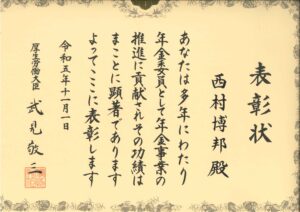 表彰状
西村博邦 殿
あなたは多年にわたり
年金委員として年金事業の
推進に貢献されその功績は
まことに顕著であります
よってここに表彰します
令和五年十一月一日
厚生労働大臣 武見敬三